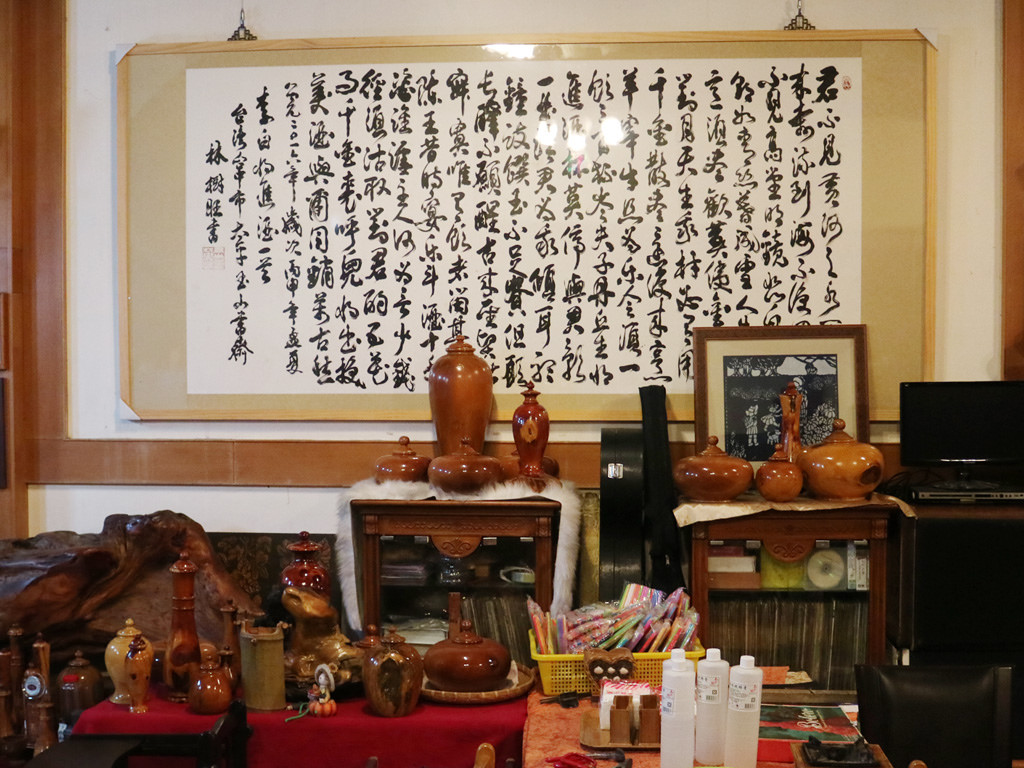 君不見黃河之水
來奔流到海不復
不見高堂明鏡悲白
朝如青絲暮成雪人生
意須盡歡莫使金
對月天生我材必有用
千金散盡還復來烹
羊宰牛且為樂會須一
飲三百杯岑夫子丹丘生將
進酒杯莫停與君歌
一曲請君為我傾耳聽
鐘鼓饌玉不足貴但願
長醉不願醒古來聖賢皆
寂寞唯有飲者留其
陳王昔時宴平樂斗酒十千
恣讙謔主人何為言少錢
徑須沽取對君酌五花
馬千金裘呼兒將出換
美酒與爾同銷萬古愁
公元二〇一六年歲次丙申年孟夏
李白將進酒一首
台灣台中市玉山書齋
林樹旺書